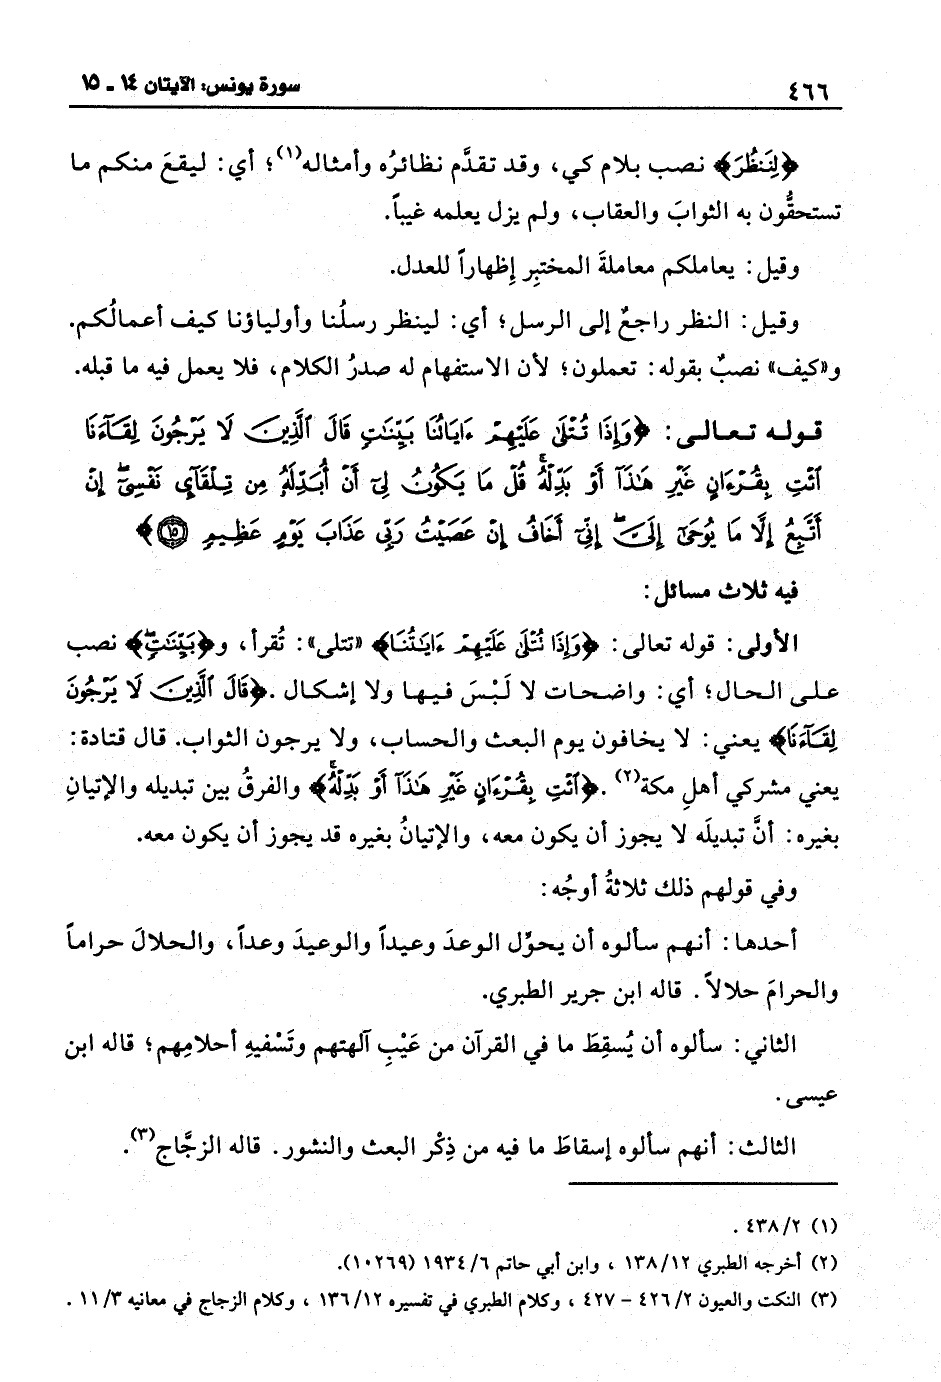 ٤٦٦
سورة يونس: الآيتان ١٤ ـ ١٥
﴿لِنَنظُرَ﴾ نصب بلام كي، وقد تقدَّم نظائرُه وأمثاله(١)؛ أي: ليقعَ منكم ما
تستحقُّون به الثوابَ والعقاب، ولم يزل يعلمه غيباً.
وقيل: يعاملكم معاملةَ المختبِر إظهاراً للعدل.
وقيل: النظر راجعٌ إلى الرسل؛ أي: لينظر رسلُنا وأولياؤنا كيف أعمالُكم.
و«كيف» نصبٌ بقوله: تعملون؛ لأن الاستفهام له صدرُ الكلام، فلا يعمل فيه ما قبله.
قوله تعالى: ﴿وَإِذَا تُتْلَىٰ عَلَيْهِمْ ءَايَاتُنَا بَيِّنَٰتٍ قَالَ ٱلَّذِينَ لَا يَرْجُونَ لِقَآءَنَا
ٱئْتِ بِقُرْءَانٍ غَيْرِ هَٰذَآ أَوْ بَدِّلْهُ ۚ قُلْ مَا يَكُونُ لِىٓ أَنْ أُبَدِّلَهُۥ مِن تِلْقَآئِ نَفْسِىٓ ۖ إِنْ
أَتَّبِعُ إِلَّا مَا يُوحَىٰٓ إِلَىَّ ۖ إِنِّىٓ أَخَافُ إِنْ عَصَيْتُ رَبِّى عَذَابَ يَوْمٍ عَظِيمٍ ۝١٥﴾
فيه ثلاث مسائل:
الأولى: قوله تعالى: ﴿وَإِذَا تُتْلَىٰ عَلَيْهِمْ ءَايَاتُنَا﴾ «تتلى»: تُقرأ، و﴿بَيِّنَٰتٍ ۖ﴾ نصب
على الحال؛ أي: واضحات لا لَبْسَ فيها ولا إشكال. ﴿قَالَ ٱلَّذِينَ لَا يَرْجُونَ
لِقَآءَنَا﴾ يعني: لا يخافون يوم البعث والحساب، ولا يرجون الثواب. قال قتادة:
يعني مشركي أهلِ مكة(٢). ﴿ٱئْتِ بِقُرْءَانٍ غَيْرِ هَٰذَآ أَوْ بَدِّلْهُ ۚ﴾ والفرقُ بين تبديله والإتيانِ
بغيره: أنَّ تبديلَه لا يجوز أن يكون معه، والإتيانُ بغيره قد يجوز أن يكون معه.
وفي قولهم ذلك ثلاثةُ أوجُه:
أحدها: أنهم سألوه أن يحوِّل الوعدَ وعيداً والوعيدَ وعداً، والحلالَ حراماً
والحرامَ حلالاً. قاله ابن جرير الطبري.
الثاني: سألوه أن يُسقِطَ ما في القرآن من عَيْبِ آلهتهم وتَسْفيهِ أحلامِهم؛ قاله ابن
عيسى.
الثالث: أنهم سألوه إسقاطَ ما فيه من ذِكْر البعث والنشور. قاله الزجَّاج(٣).
(١) ٤٣٨/٢ .
(٢) أخرجه الطبري ١٣٨/١٢ ، وابن أبي حاتم ١٩٣٤/٦ (١٠٢٦٩).
(٣) النكت والعيون ٤٢٦/٢ – ٤٢٧ ، وكلام الطبري في تفسيره ١٣٦/١٢ ، وكلام الزجاج في معانيه ١١/٣ .